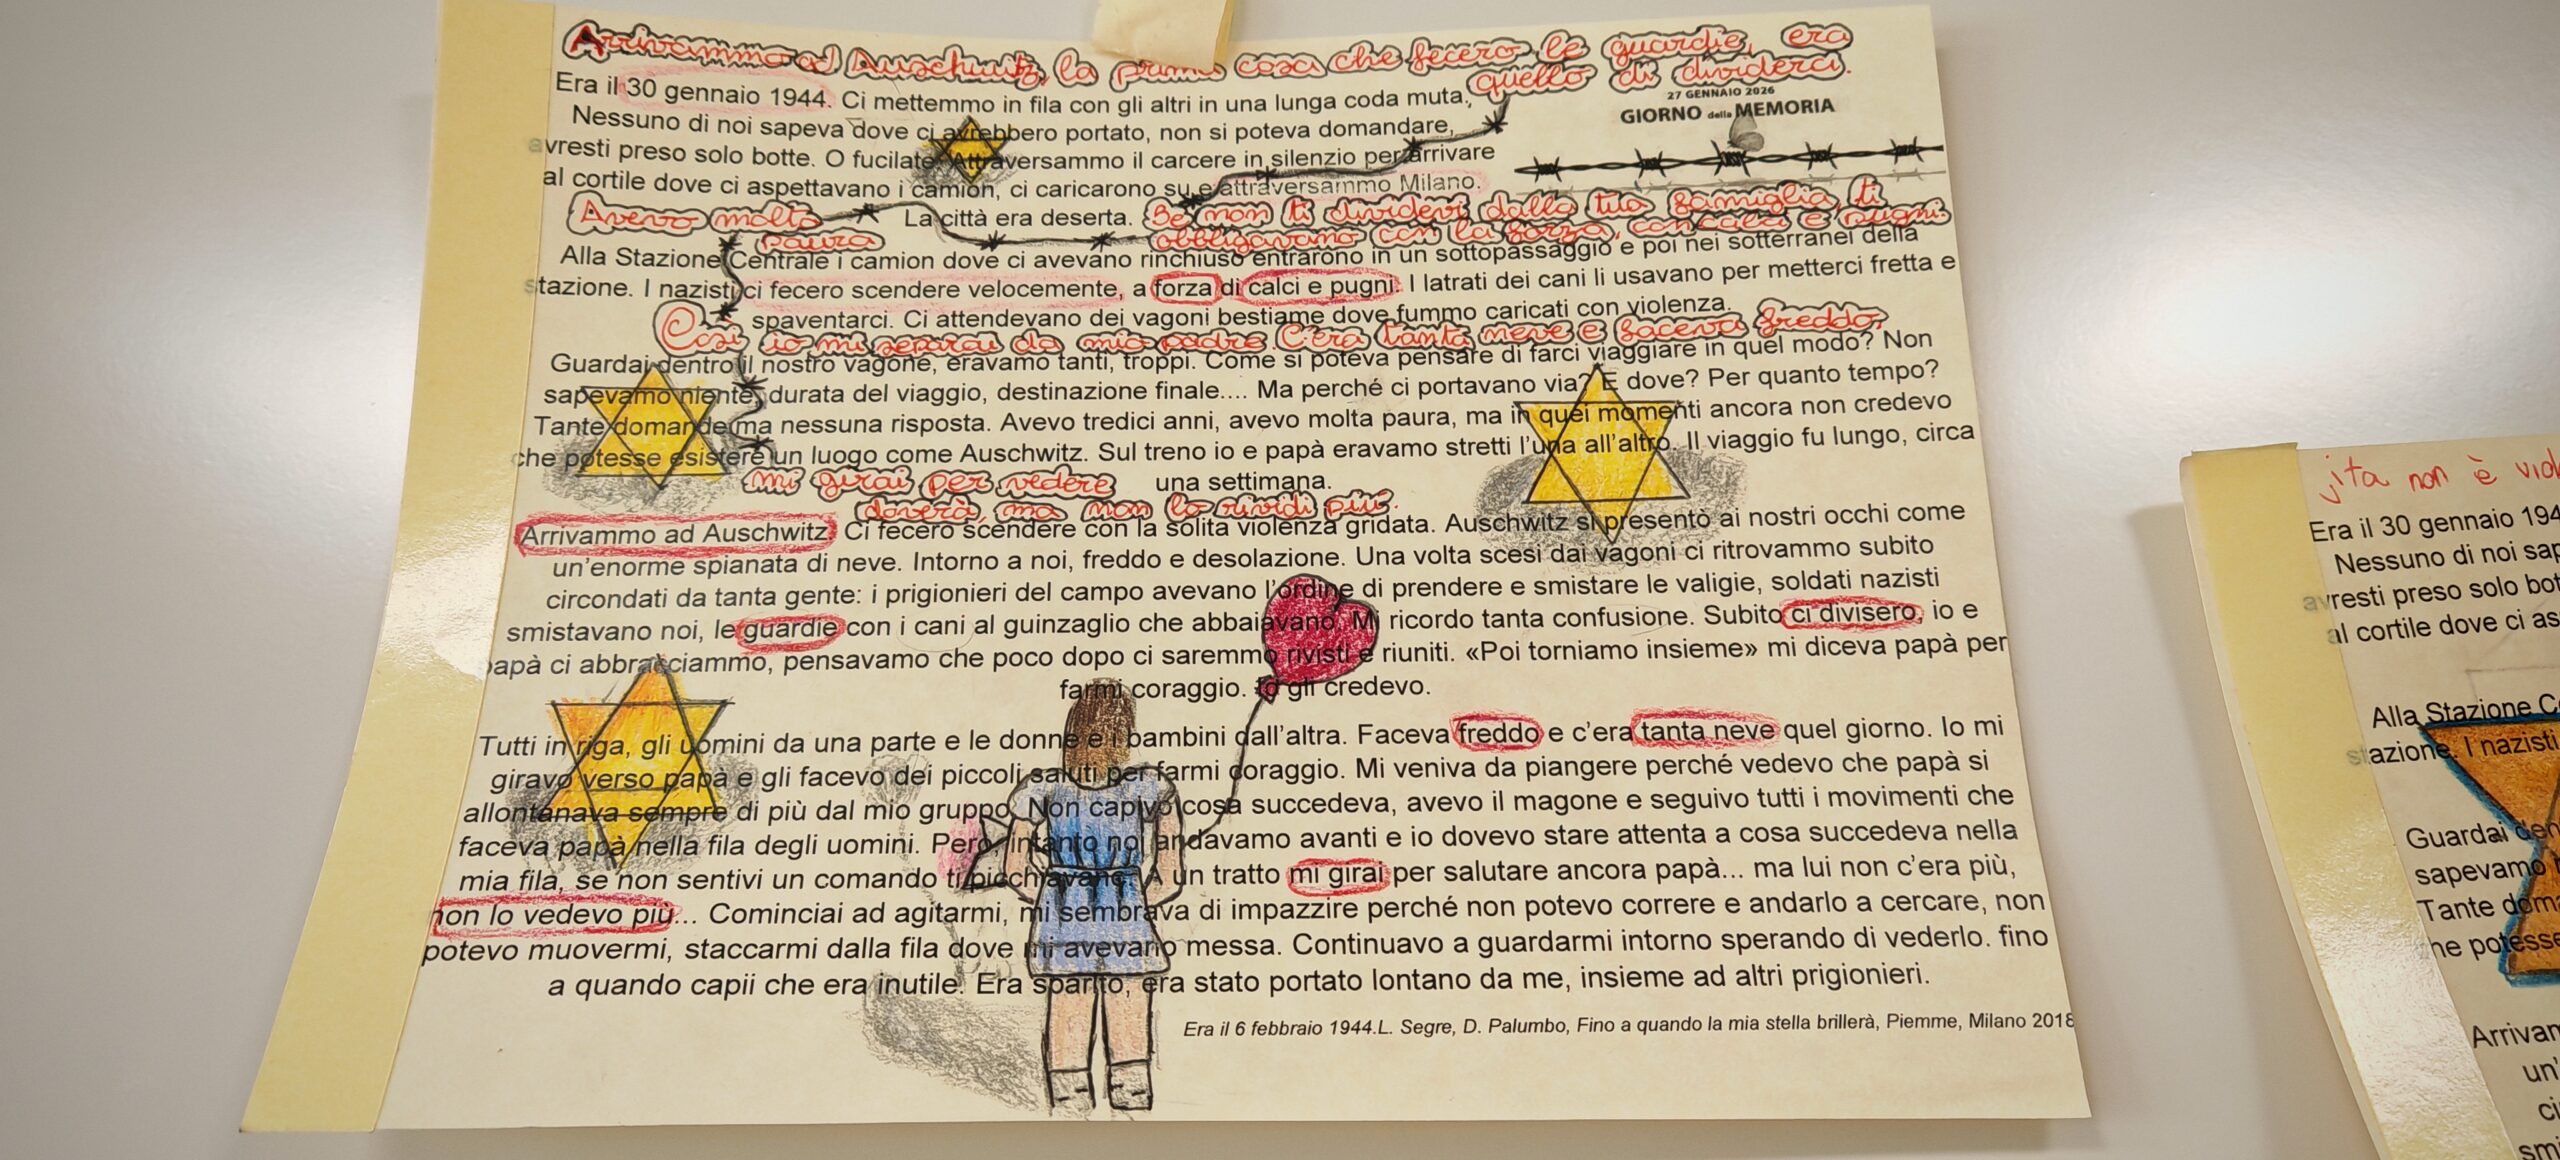 Arrivammo ad Auschwitz, la prima cosa che fecero le guardie, era
quello di dividerci.
27 GENNAIO 2026
GIORNO della MEMORIA
Era il 30 gennaio 1944. Ci mettemmo in fila con gli altri in una lunga coda muta.
Nessuno di noi sapeva dove ci avrebbero portato, non si poteva domandare,
avresti preso solo botte. O fucilate. Attraversammo il carcere in silenzio per arrivare
al cortile dove ci aspettavano i camion, ci caricarono su e attraversammo Milano.
La città era deserta.
Avevo molta
paura
Se non ti dividevi dalla tua famiglia, ti
obbligavano con la forza, con calci e pugni.
Alla Stazione Centrale i camion dove ci avevano rinchiuso entrarono in un sottopassaggio e poi nei sotterranei della
stazione. I nazisti ci fecero scendere velocemente, a forza di calci e pugni. I latrati dei cani li usavano per metterci fretta e
spaventarci. Ci attendevano dei vagoni bestiame dove fummo caricati con violenza.
Così io mi separai da mio padre C'era tanta neve e faceva freddo,
Guardai dentro il nostro vagone, eravamo tanti, troppi. Come si poteva pensare di farci viaggiare in quel modo? Non
sapevamo niente, durata del viaggio, destinazione finale.... Ma perché ci portavano via? E dove? Per quanto tempo?
Tante domande ma nessuna risposta. Avevo tredici anni, avevo molta paura, ma in quei momenti ancora non credevo
che potesse esistere un luogo come Auschwitz. Sul treno io e papà eravamo stretti l'una all'altro. Il viaggio fu lungo, circa
una settimana.
mi girai per vedere
doverà, ma non lo rividi più.
Arrivammo ad Auschwitz. Ci fecero scendere con la solita violenza gridata. Auschwitz si presentò ai nostri occhi come
un'enorme spianata di neve. Intorno a noi, freddo e desolazione. Una volta scesi dai vagoni ci ritrovammo subito
circondati da tanta gente: i prigionieri del campo avevano l'ordine di prendere e smistare le valigie, soldati nazisti
smistavano noi, le guardie con i cani al guinzaglio che abbaiavano. Mi ricordo tanta confusione. Subito ci divisero, io e
papà ci abbracciammo, pensavamo che poco dopo ci saremmo rivisti e riuniti. «Poi torniamo insieme» mi diceva papà per
farmi coraggio. Io gli credevo.
Tutti in riga, gli uomini da una parte e le donne e i bambini dall'altra. Faceva freddo e c'era tanta neve quel giorno. Io mi
giravo verso papà e gli facevo dei piccoli saluti per farmi coraggio. Mi veniva da piangere perché vedevo che papà si
allontanava sempre di più dal mio gruppo. Non capivo cosa succedeva, avevo il magone e seguivo tutti i movimenti che
faceva papà nella fila degli uomini. Però, intanto noi andavamo avanti e io dovevo stare attenta a cosa succedeva nella
mia fila, se non sentivi un comando ti picchiavano. A un tratto mi girai per salutare ancora papà... ma lui non c'era più,
non lo vedevo più... Cominciai ad agitarmi, mi sembrava di impazzire perché non potevo correre e andarlo a cercare, non
potevo muovermi, staccarmi dalla fila dove mi avevano messa. Continuavo a guardarmi intorno sperando di vederlo. fino
a quando capii che era inutile. Era sparito, era stato portato lontano da me, insieme ad altri prigionieri.
Era il 6 febbraio 1944.L. Segre, D. Palumbo, Fino a quando la mia stella brillerà, Piemme, Milano 2018
non è
Era il 30 gennaio
Nessuno di noi
avresti preso solo
al cortile dove ci
Alla Stazione
stazione. I nazisti
Guardai
sapevamo
Tante
che potesse